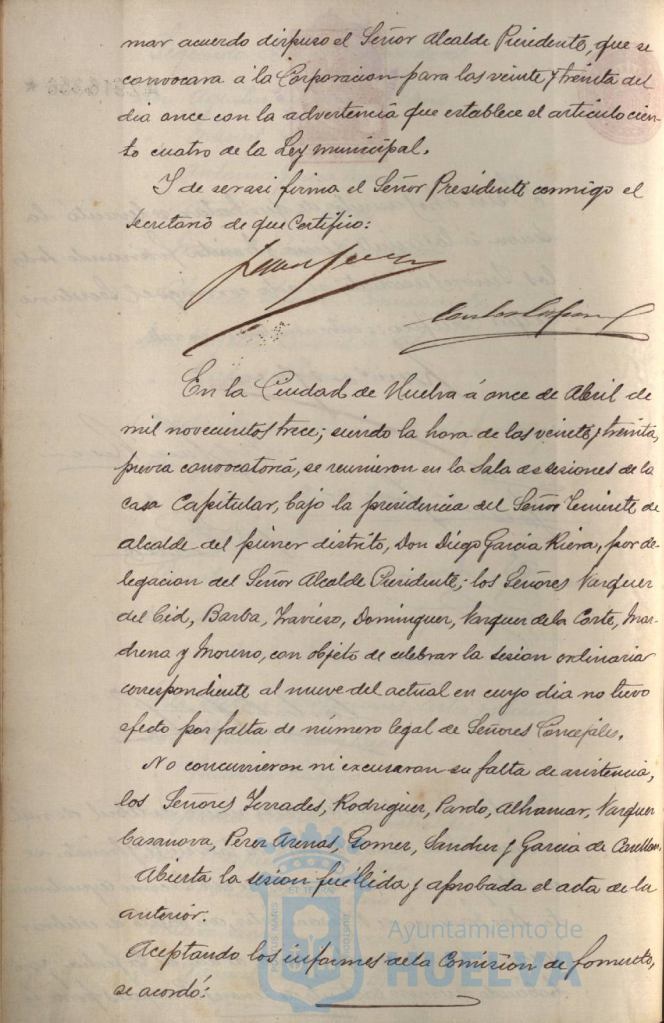 mar acuerdo dispuso el Señor Alcalde Presidente, que se
convocara á la Corporacion para las veinte y treinta del
dia once con la advertencia que establece el articulo cien-
to cuatro de la Ley municipal.
Y de ser asi firma el Señor Presidente conmigo el
Secretario de que Certifico:
En la Ciudad de Huelva á once de Abril de
mil novecientos trece; siendo la hora de las veinte y treinta,
previa convocatoria, se reunieron en la Sala de sesiones de la
casa Capitular, bajo la presidencia del Señor Teniente de
Alcalde del primer distrito, Don Diego Garcia Riera, por de
legacion del Señor Alcalde Presidente; los Señores Vazquez
del Cid, Barba, Travieso, Dominguez, Vazquez de la Corte, Mar-
chena y Moreno, con objeto de celebrar la sesion ordinaria
correspondiente al nueve del actual en cuyo dia no tuvo
efecto por falta de número legal de Señores Concejales.
No concurrieron ni excusaron su falta de asistencia,
los Señores Terrades, Rodriguez, Pardo, Alhamar, Vazquez
Casanova, Perez Arenas, Gomez, Sanchez y Garcia de
Abierta la sesion fué leida y aprobada el acta de la
anterior.
Aceptando los informes de la Comision de fomento,
se acordó:
Ayuntamiento de
HUELVA